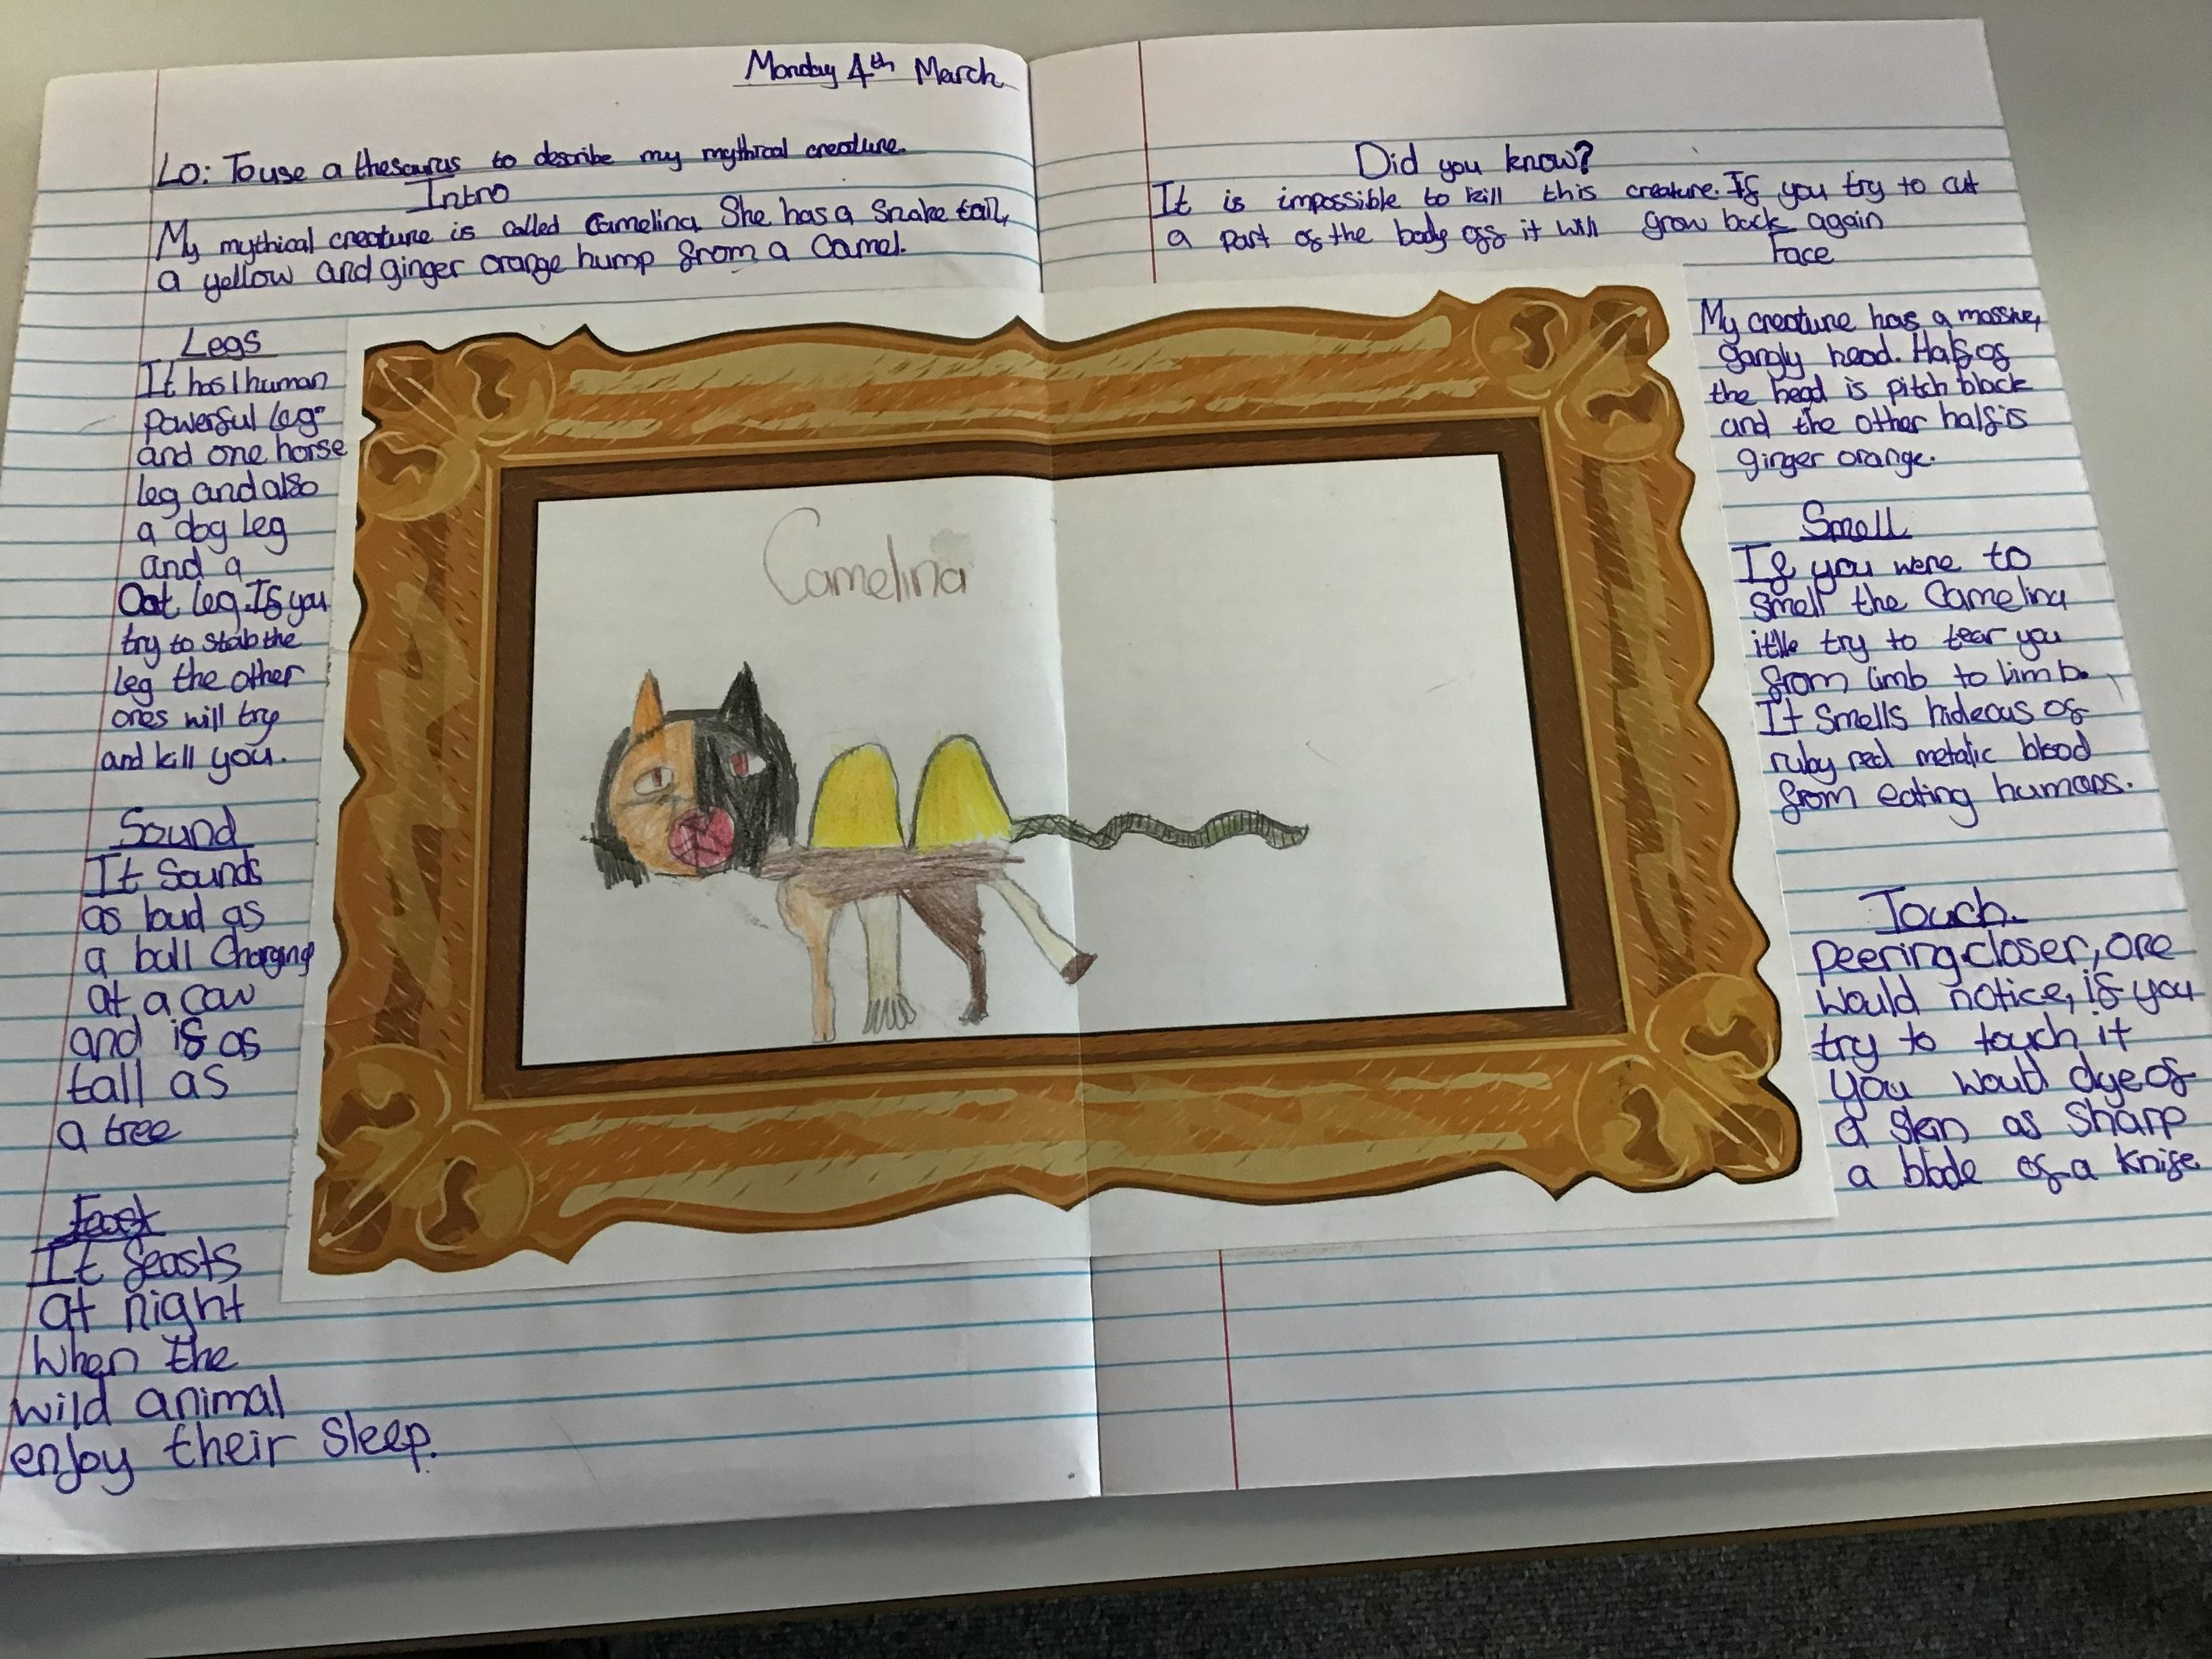 Monday 4th March
LO: To use a thesaurus to describe my mythical creature.
Intro
My mythical creature is called Camelina. She has a snake tail,
a yellow and ginger orange hump from a Camel.
Legs
It has 1 human
powerful leg
and one horse
leg and also
a dog leg
and a
Cat leg. If you
try to stab the
leg the other
ones will try
and kill you.
Sound
It sounds
as loud as
a bull Charging
at a cow
and is as
tall as
a tree
Feast
It feasts
at night
when the
wild animal
enjoy their sleep.
Camelina
Did you know?
It is impossible to kill this creature. If you try to cut
a part of the body off it will grow back again
Face
My creature has a massive,
gangly head. Half of
the head is pitch black
and the other half is
ginger orange.
Smell
If you were to
smell the Camelina
it'll try to tear you
from limb to limb.
It smells hideous of
ruby red metalic blood
from eating humans.
Touch
Peering closer, one
would notice, if you
try to touch it
you would dye of
a skin as sharp
a blade of a knife.